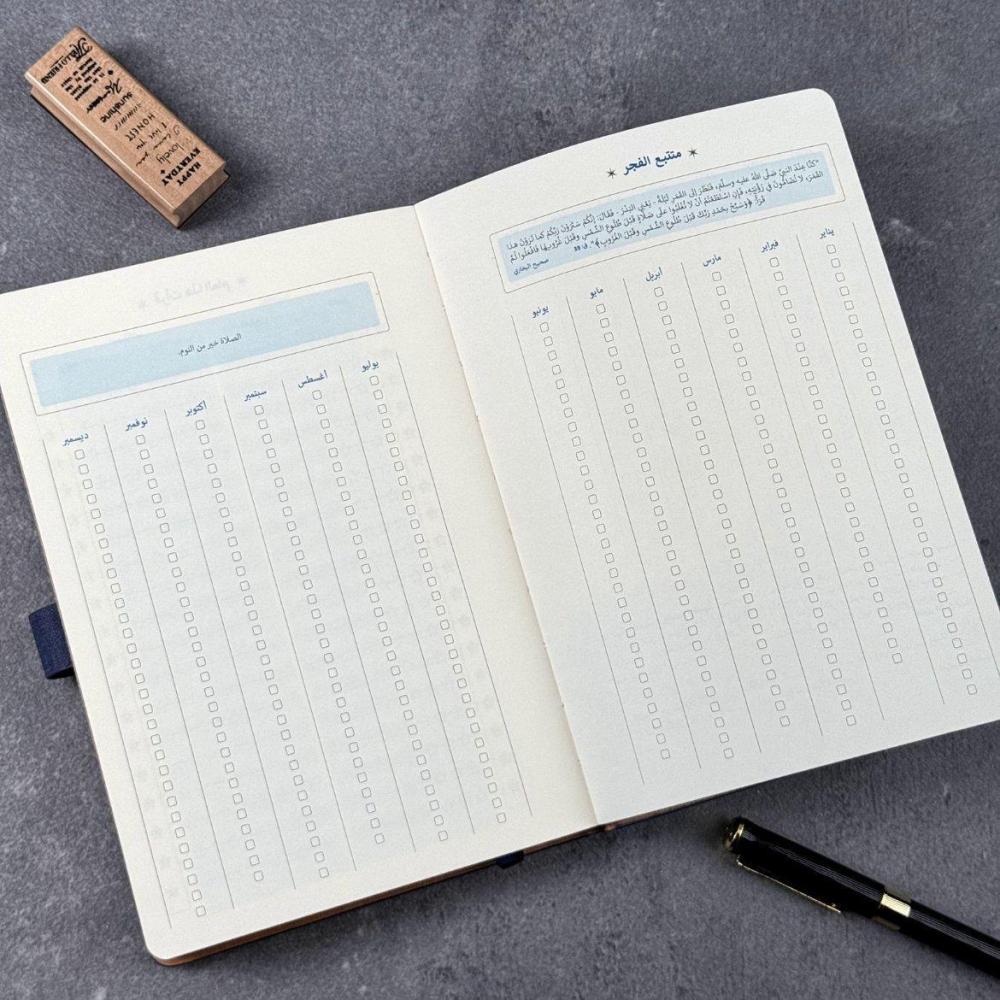 متتبع الفجر
"كنَّا عِنْدَ النبيِّ صَلَّى اللهُ عليه وسلَّمَ، فَنَظَرَ إلى القَمَرِ لَيْلَةً - يَعْنِي البَدْرَ - فَقالَ: إنَّكُمْ سَتَرَوْنَ رَبَّكُمْ كما تَرَوْنَ هذا
القَمَرَ، لا تُضَامُّونَ في رُؤْيَتِهِ، فَإِنِ اسْتَطَعْتُمْ أنْ لا تُغْلَبُوا علَى صَلَاةٍ قَبْلَ طُلُوعِ الشَّمْسِ وقَبْلَ غُرُوبِهَا فَافْعَلُوا ثُمَّ
قَرَأَ: ﴿وَسَبِّحْ بِحَمْدِ رَبِّكَ قَبْلَ طُلُوعِ الشَّمْسِ وَقَبْلَ الغُرُوبِ﴾". ق: 39
صحيح البخاري
يناير
فبراير
مارس
أبريل
مايو
يونيو
الصلاة خير من النوم.
يوليو
أغسطس
سبتمبر
أكتوبر
نوفمبر
ديسمبر
HELLO FRIEND
sunshine
HONEST
lovely
HAPPY
EVERYDAY